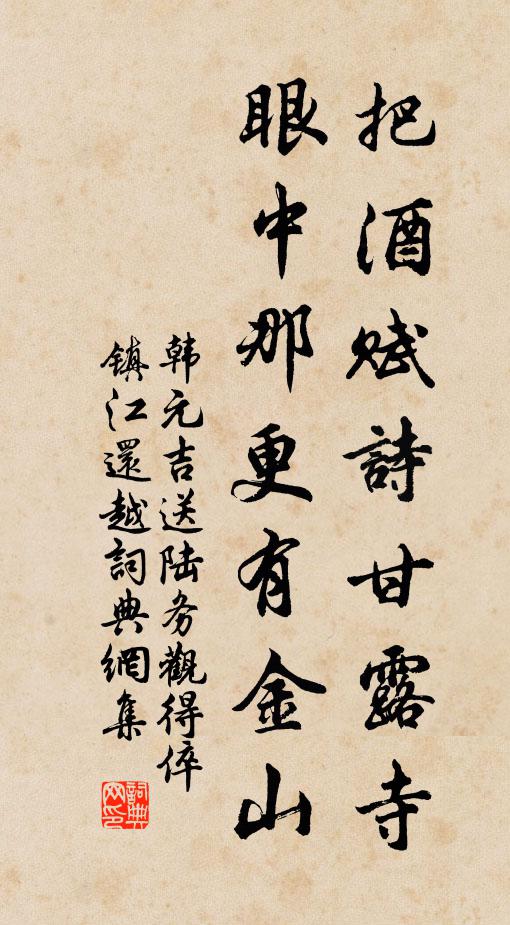 把酒赋詩甘露寺
眼中那更有金山
韩元吉送陆务觀得倅
镇江還越詞典網集
詞典网印